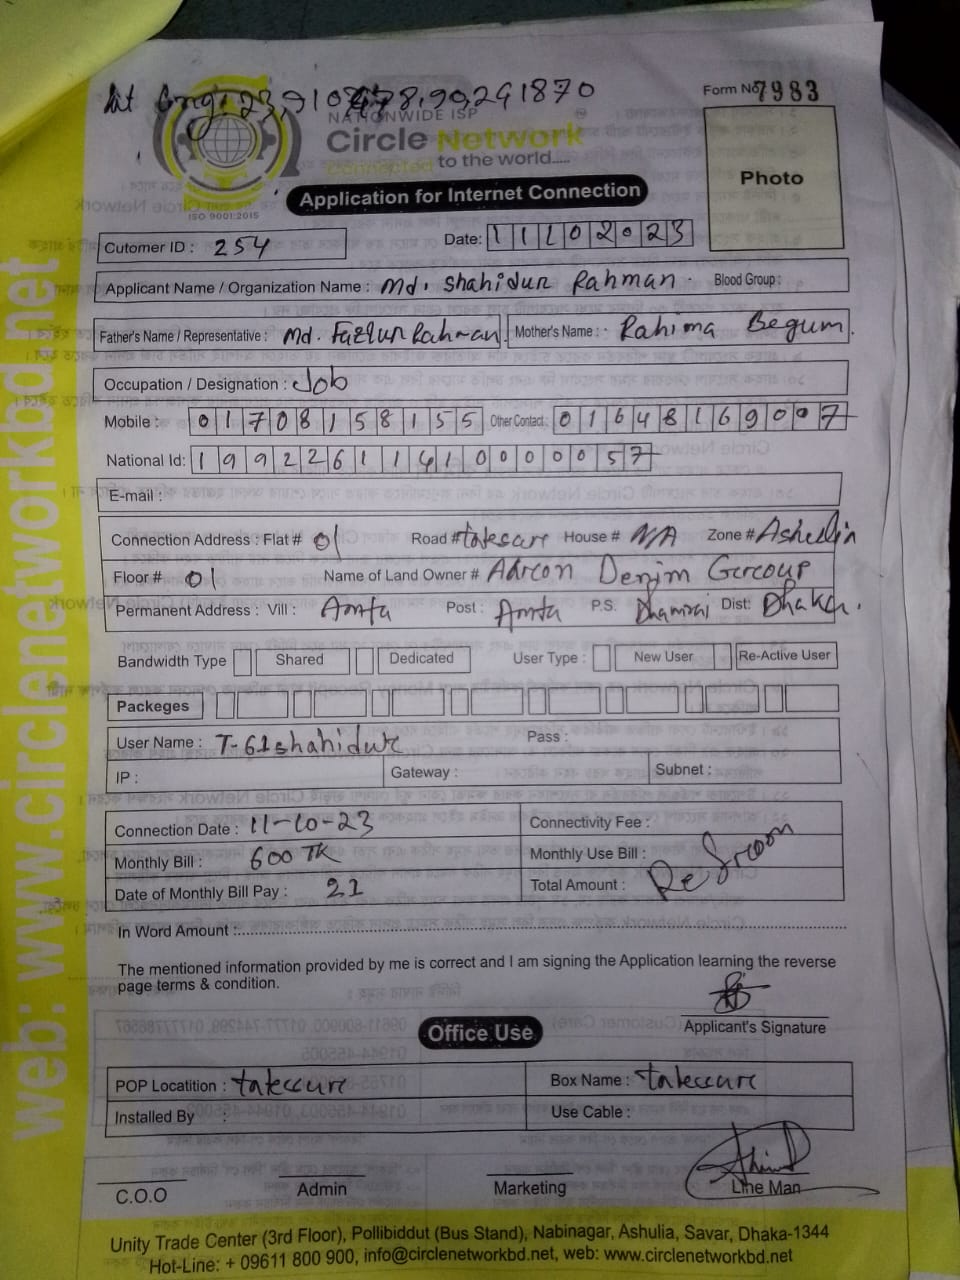 Form No 7983
Lat Long: 23,910
90,241870
NATIONWIDE ISP
Circle Network
Connected to the world.....
ISO 9001:2015
Photo
Application for Internet Connection
Cutomer ID : 254
Date: 11102023
Applicant Name / Organization Name : Md. Shahidur Rahman
Blood Group :
Father's Name / Representative : Md. Fazlur Rahman
Mother's Name : Rahima Begum.
Occupation / Designation : Job
Mobile : 01708158155 Other Contact : 01648169097
National Id: 19922611141000057
E-mail :
Connection Address : Flat # 01 Road # House # N/A Zone #
Floor # 01 Name of Land Owner # Denim
Permanent Address : Vill : Amta Post : Amta P.S. Dhamrai Dist: Dhaka.
Bandwidth Type Shared Dedicated User Type : New User Re-Active User
Packeges
User Name : T-61shahidur Pass :
IP : Gateway : Subnet :
Connection Date : 11-10-23 Connectivity Fee :
Monthly Bill : 600 TK Monthly Use Bill :
Date of Monthly Bill Pay : 21 Total Amount :
In Word Amount :
The mentioned information provided by me is correct and I am signing the Application learning the reverse
page terms & condition.
Applicant's Signature
Office Use
POP Locatition : Box Name :
Installed By : Use Cable :
C.O.O Admin Marketing Line Man
Unity Trade Center (3rd Floor), Pollibiddut (Bus Stand), Nabinagar, Ashulia, Savar, Dhaka-1344
Hot-Line: + 09611 800 900, info@circlenetworkbd.net, web: www.circlenetworkbd.net
web: www.circlenetworkbd.net